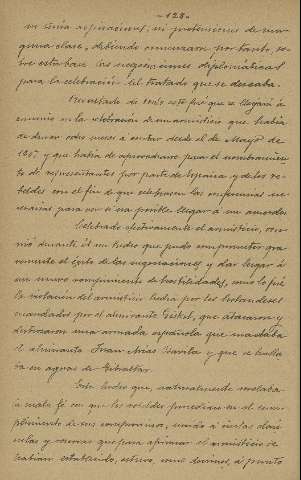 -128-
ni tenía aspiraciones, ni pretensiones de nin-
guna clase, debiendo comenzarse por tanto, so-
bre esta base las negociaciones diplomáticas
para la celebración del tratado que se deseaba.
Resultado de todo esto fué que se llegará á
convenio en la celebración de un armisticio que había
de durar ocho meses á contar desde el de Mayo de
1607 y que había de aprovecharse para el nombramien-
to de representantes por parte de España y de los re-
beldes con el fin de que celebrasen las conferencias ne-
cesarias para ver si era posible llegar á un acuerdo.
Celebrado efectivamente el armisticio, ocu-
rrió durante él un hecho que pudo comprometer gra-
vemente el éxito de las negociaciones y dar lugar á
un nuevo rompimiento de hostilidades, como lo fué
la violación del armisticio hecha por los holandeses
mandados por el almirante que atacaron y
destrozaron una armada española que mandaba
el almirante Juan y que se halla-
ba en aguas de Gibraltar.
Este hecho que, naturalmente revelaba
la mala fé con que los rebeldes procedían en el cum-
plimiento de sus compromisos, unido á ciertas claú-
sulas y reservas que para afirmar el armisticio se
habían establecido, estuvo, como decimos, á punto